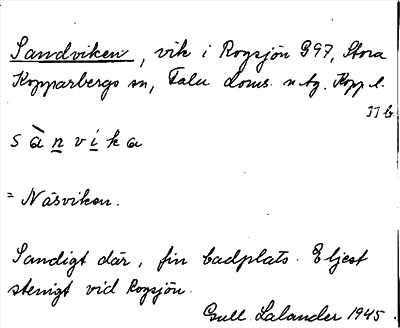 Sandviken, vik i Rogsjön G97, Stora
Kopparbergs sn, Falu doms. n tg. Kopp l.
II b
s à n v i k a
= Näsviken.
Sandigt där, fin badplats. Eljest
stenigt vid Rogsjön.
Gull. Lalander 1945.